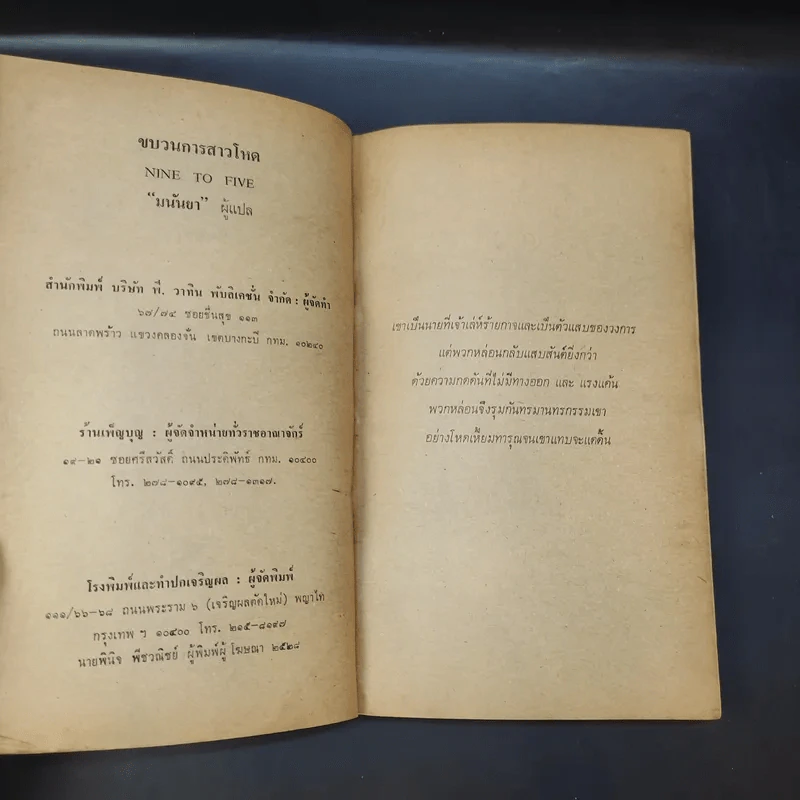 ขบวนการสาวโหด
NINE TO FIVE
“มนันยา” ผู้แปล
สำนักพิมพ์ บริษัท พี. วาทิน พับลิเคชั่น จำกัด : ผู้จัดทำ
๖๘/๗๔ ซอยชื่นสุข ๑๑๓
ถนนลาดพร้าว แขวงคลองจั่น เขตบางกะปิ กทม. ๑๐๒๔๐
ร้านเพ็ญบุญ : ผู้จัดจำหน่ายทั่วราชอาณาจักร์
๑๙-๒๑ ซอยศรีสวัสดิ์ ถนนประดิพัทธ์ กทม. ๑๐๔๐๐
โทร. ๒๗๘-๑๐๙๕, ๒๗๘-๑๓๑๗.
โรงพิมพ์และทำปกเจริญผล : ผู้จัดพิมพ์
๑๑๑/๖๖-๖๘ ถนนพระราม ๖ (เจริญผลตัดใหม่) พญาไท
กรุงเทพ ฯ ๑๐๔๐๐ โทร. ๒๑๕-๘๑๙๗
นายพินิจ พืชวณิชย์ ผู้พิมพ์ผู้โฆษณา ๒๕๒๘
เขาเป็นนายที่เจ้าเล่ห์ร้ายกาจและเป็นตัวแสบของวงการ
แต่พวกหล่อนกลับแสบสันต์ยิ่งกว่า
ด้วยความกดดันที่ไม่มีทางออก และ แรงแค้น
พวกหล่อนจึงรุมกันทรมานทรกรรมเขา
อย่างโหดเหี้ยมทารุณจนเขาแทบจะแดดิ้น